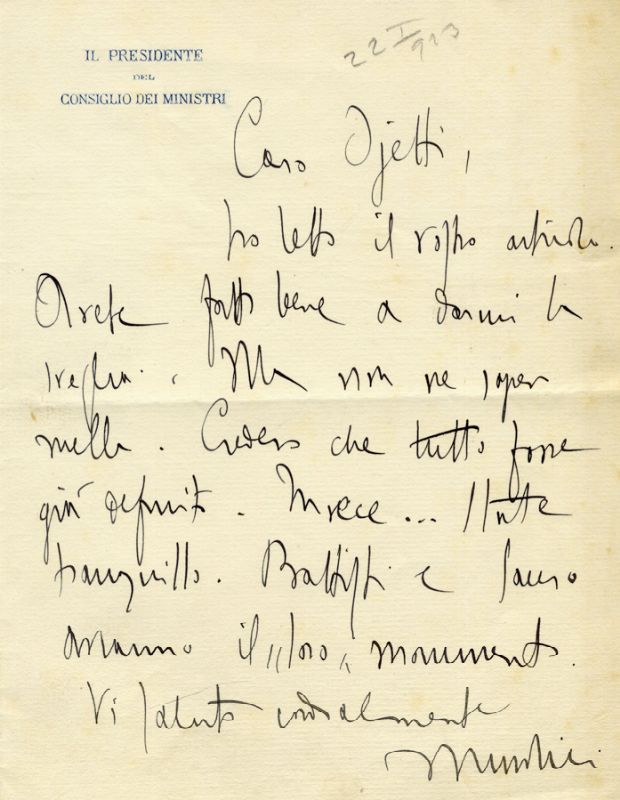 IL PRESIDENTE
DEL
CONSIGLIO DEI MINISTRI
22 I 923
Caro Ojetti,
ho letto il vostro articolo.
Avete fatto bene a darmi la
sveglia. Ma non ne sapevo
nulla. Credevo che tutto fosse
già definito. Invece... State
tranquillo. Battisti e Sauro
avranno il "loro" monumento.
Vi saluto cordialmente
Mussolini